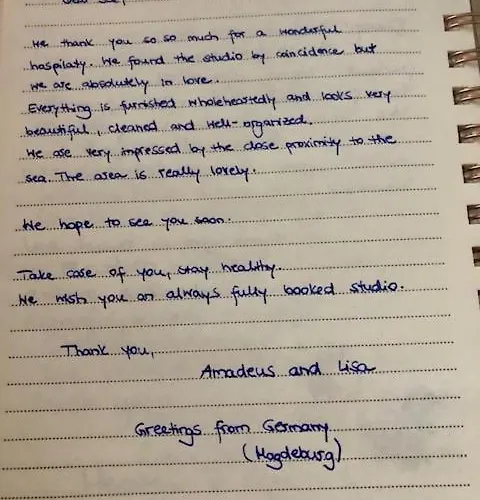 We thank you so so much for a wonderful
hospilaty. We found the studio by coincidence but
we are absolutely in love.
Everything is furnished wholeheartedly and looks very
beautiful, cleaned and well-organized.
We are very impressed by the close proximity to the
sea. The area is really lovely.
We hope to see you soon.
Take care of you, stay healthy.
We wish you an always fully booked studio.
Thank you,
Amadeus and Lisa
Greetings from Germany
(Magdeburg)